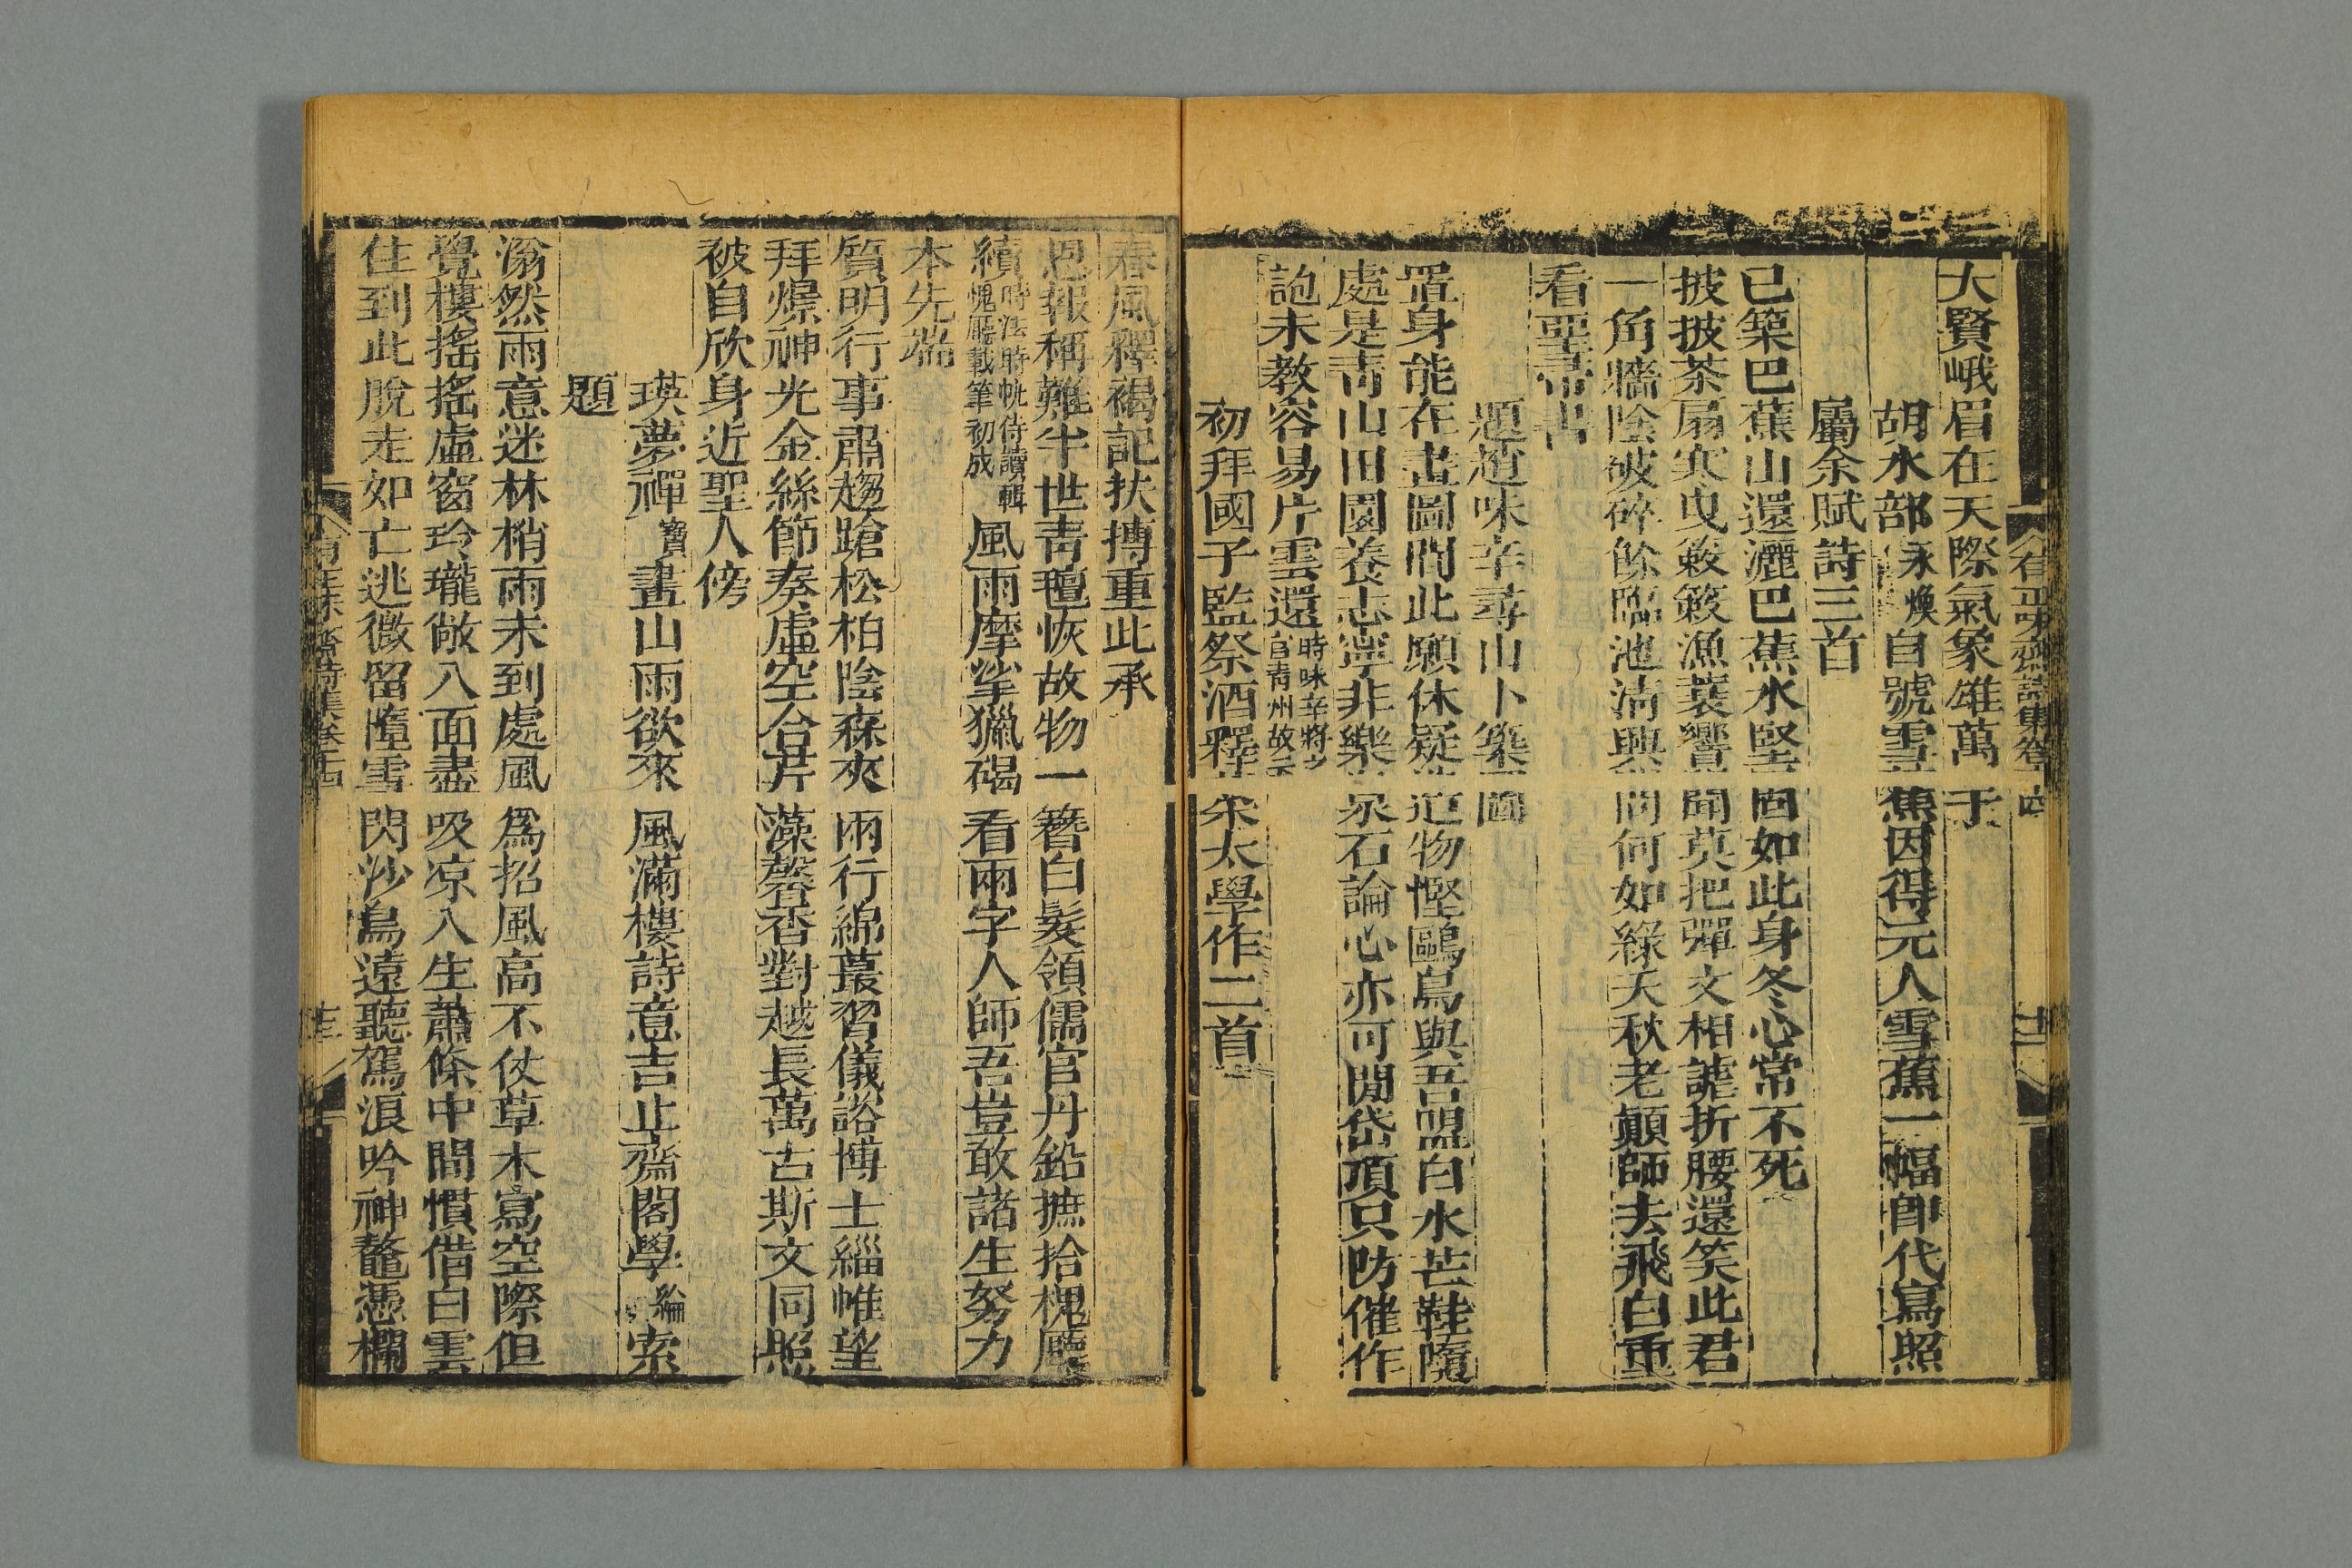 有正味齋詩集卷十四 十二
大賢峨眉在天際氣象雄萬于
胡水部永煥自號雪蕉因得元人雪蕉一幅卽代寫照
屬余賦詩三首
已築巴蕉山還灑巴蕉水堅固如此身冬心常不死
披披茶扇寒曳簌簌漁蓑響聞莫把彈文相謔折腰還笑此君
一角牆陰破碎餘臨池淸興問何如綠天秋老顚師去飛白重
看亞帚書
題趙味辛尋山卜築圖
置身能在畫圖間此願休疑造物慳鷗鳥與吾盟白水芒鞋隨
處是靑山田園養志寧非樂泉石論心亦可閒岱頂只防催作
詑未教容易片雲還時味辛將之官靑州故云
初拜國子監祭酒釋菜太學作二首
春風釋褐記扶摶重此承
恩報稱難半世靑氊恢故物一簪白髮領儒官丹鉛摭拾槐廳
續時法時帆侍讀輯槐廳載筆初成風雨摩挲獵碣看兩字人師吾豈敢諸生努力
本先端
質明行事肅趨蹌松柏陰森夾兩行綿蕞習儀諮博士緇帷望
拜㬌神光金絲節奏虛空合芹藻馨香對越長萬古斯文同照
被自欣身近聖人傍
瑛夢禪寶畫山雨欲來風滿樓詩意吉止齋閣學綸索
題
滃然雨意迷林梢雨未到處風爲招風高不仗草木寫空際但
覺樓搖搖虛窗玲瓏敞八面盡吸凉入生蕭條中間慣借白雲
住到此脫走如亡逃微留墮雪閃沙鳥遠聽駕浪吟神鼇憑欄
有正味齋詩集卷十四 十三